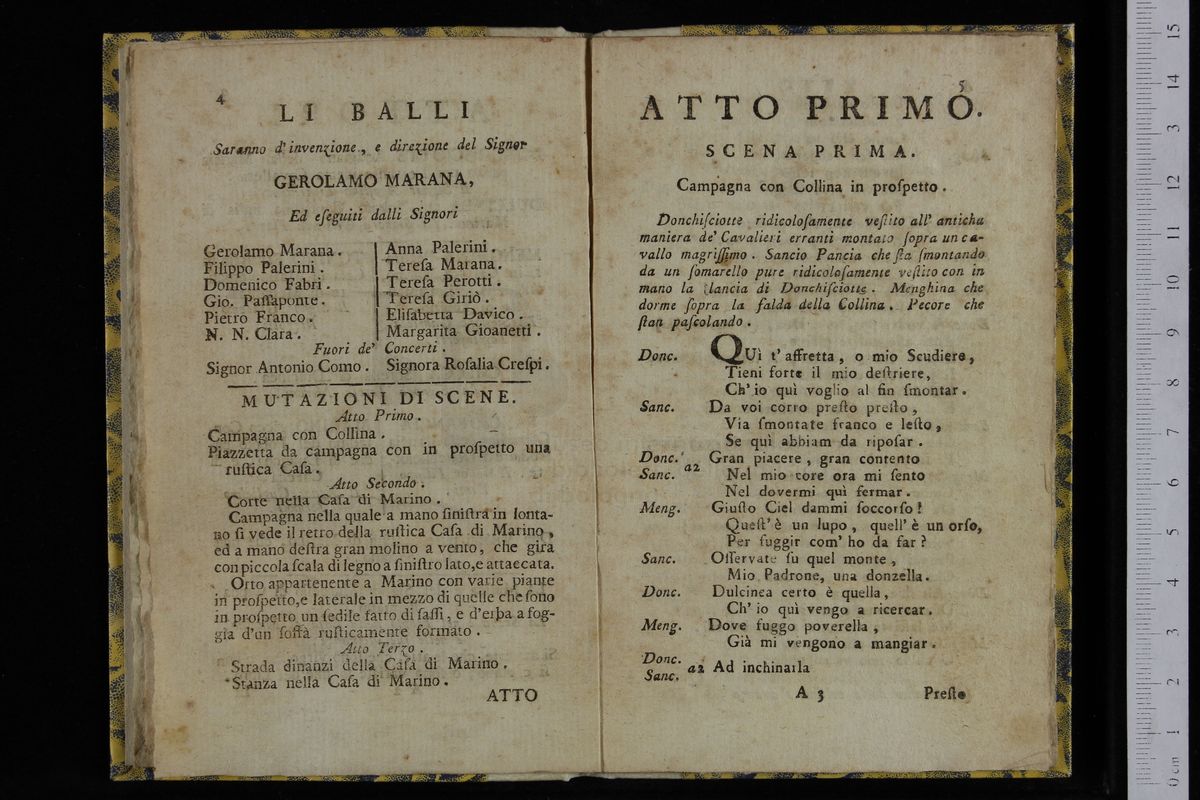 4
LI BALLI
Saranno d'invenzione, e direzione del Signor
GEROLAMO MARANA,
Ed eſeguiti dalli Signori
Gerolamo Marana. Anna Palerini.
Filippo Palerini. Tereſa Marana.
Domenico Fabri. Tereſa Perotti.
Gio. Paſſaponte. Tereſa Giriò.
Pietro Franco. Eliſabetta Davico.
N. N. Clara. Margarita Gioanetti.
Fuori de' Concerti.
Signor Antonio Como. Signora Roſalia Creſpi.
MUTAZIONI DI SCENE.
Atto Primo.
Campagna con Collina.
Piazzetta da campagna con in proſpetto una
ruſtica Caſa.
Atto Secondo.
Corte nella Caſa di Marino.
Campagna nella quale a mano ſiniſtra in lonta-
no ſi vede il retro della ruſtica Caſa di Marino,
ed a mano deſtra gran molino a vento, che gira
con piccola ſcala di legno a ſiniſtro lato, e attaecata.
Orto appartenente a Marino con varie piante
in proſpetto, e laterale in mezzo di quelle che ſono
in proſpetto un ſedile fatto di ſaſſi, e d'erba a fog-
gia d'un ſoffà ruſticamente formato.
Atto Terzo.
Strada dinanzi della Caſa di Marino.
Stanza nella Caſa di Marino.
ATTO
5
ATTO PRIMO.
SCENA PRIMA.
Campagna con Collina in proſpetto.
Donchiſciotte ridicoloſamente veſtito all' anticha
maniera de' Cavalieri erranti montato ſopra un ca-
vallo magriſſimo. Sancio Pancia che ſta ſmontando
da un ſomarello pure ridicoloſamente veſtito con in
mano la lancia di Donchiſciotte. Menghina che
dorme ſopra la falda della Collina. Pecore che
ſtan paſcolando.
Donc. QUì t' affretta, o mio Scudiere,
Tieni forte il mio deſtriere,
Ch' io quì voglio al fin ſmontar.
Sanc. Da voi corro preſto preſto,
Via ſmontate franco e leſto,
Se quì abbiam da ripoſar.
Donc. Gran piacere, gran contento
Sanc. a2 Nel mio core ora mi ſento
Nel dovermi quì fermar.
Meng. Giuſto Ciel dammi ſoccorſo!
Queſt' è un lupo, quell' è un orſo,
Per fuggir com' ho da far?
Sanc. Oſſervate ſu quel monte,
Mio Padrone, una donzella.
Donc. Dulcinea certo è quella,
Ch' io quì vengo a ricercar.
Meng. Dove fuggo poverella,
Già mi vengono a mangiar.
Donc.
Sanc. a2 Ad inchinarla
A 3 Preſto
0 cm 1 2 3 4 5 6 7 8 9 10 11 12 13 14 15